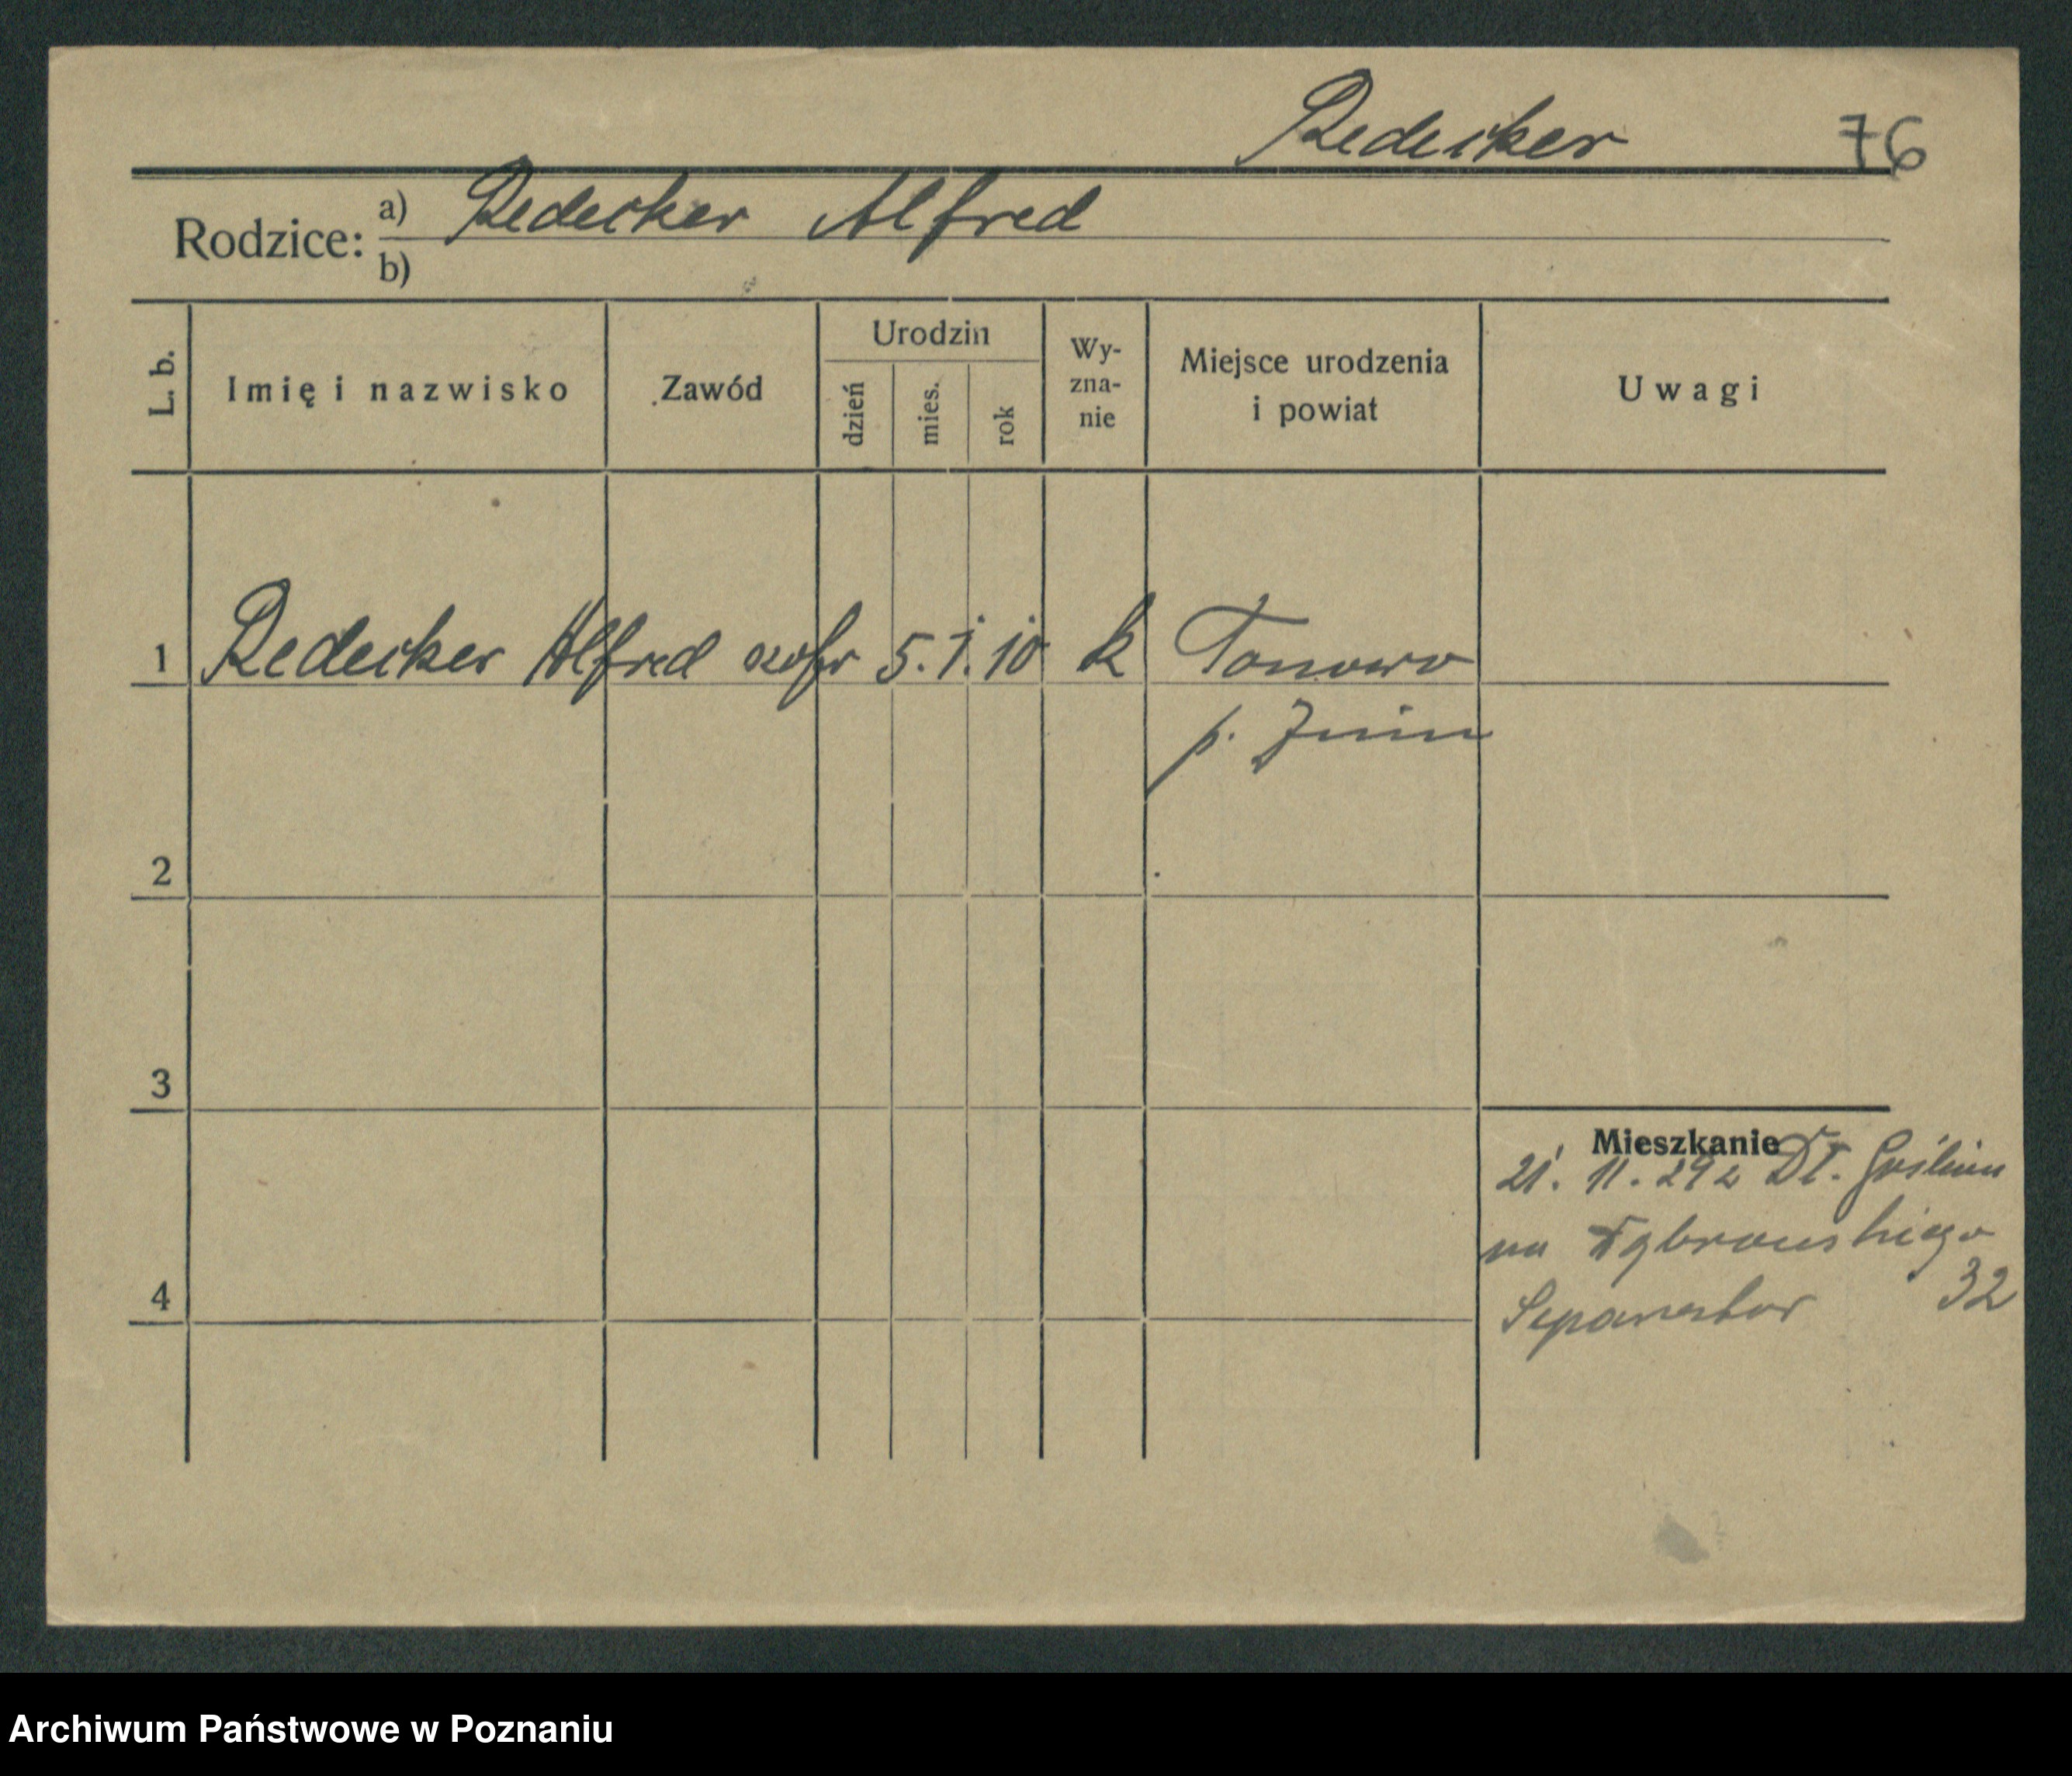 Redecker 76
Rodzice: a) Redecker Alfred
b)
L. b. Imię i nazwisko Zawód Urodzin dzień mies. rok Wy-zna-nie Miejsce urodzenia i powiat Uwagi
1 Redecker Alfred szofer 5. 1. 10 k Tonowo
p. Żnin
2
3
Mieszkanie
21. 11. 29 z Dł. Goślina
na Dąbrowskiego
4 32
Separator
Archiwum Państwowe w Poznaniu